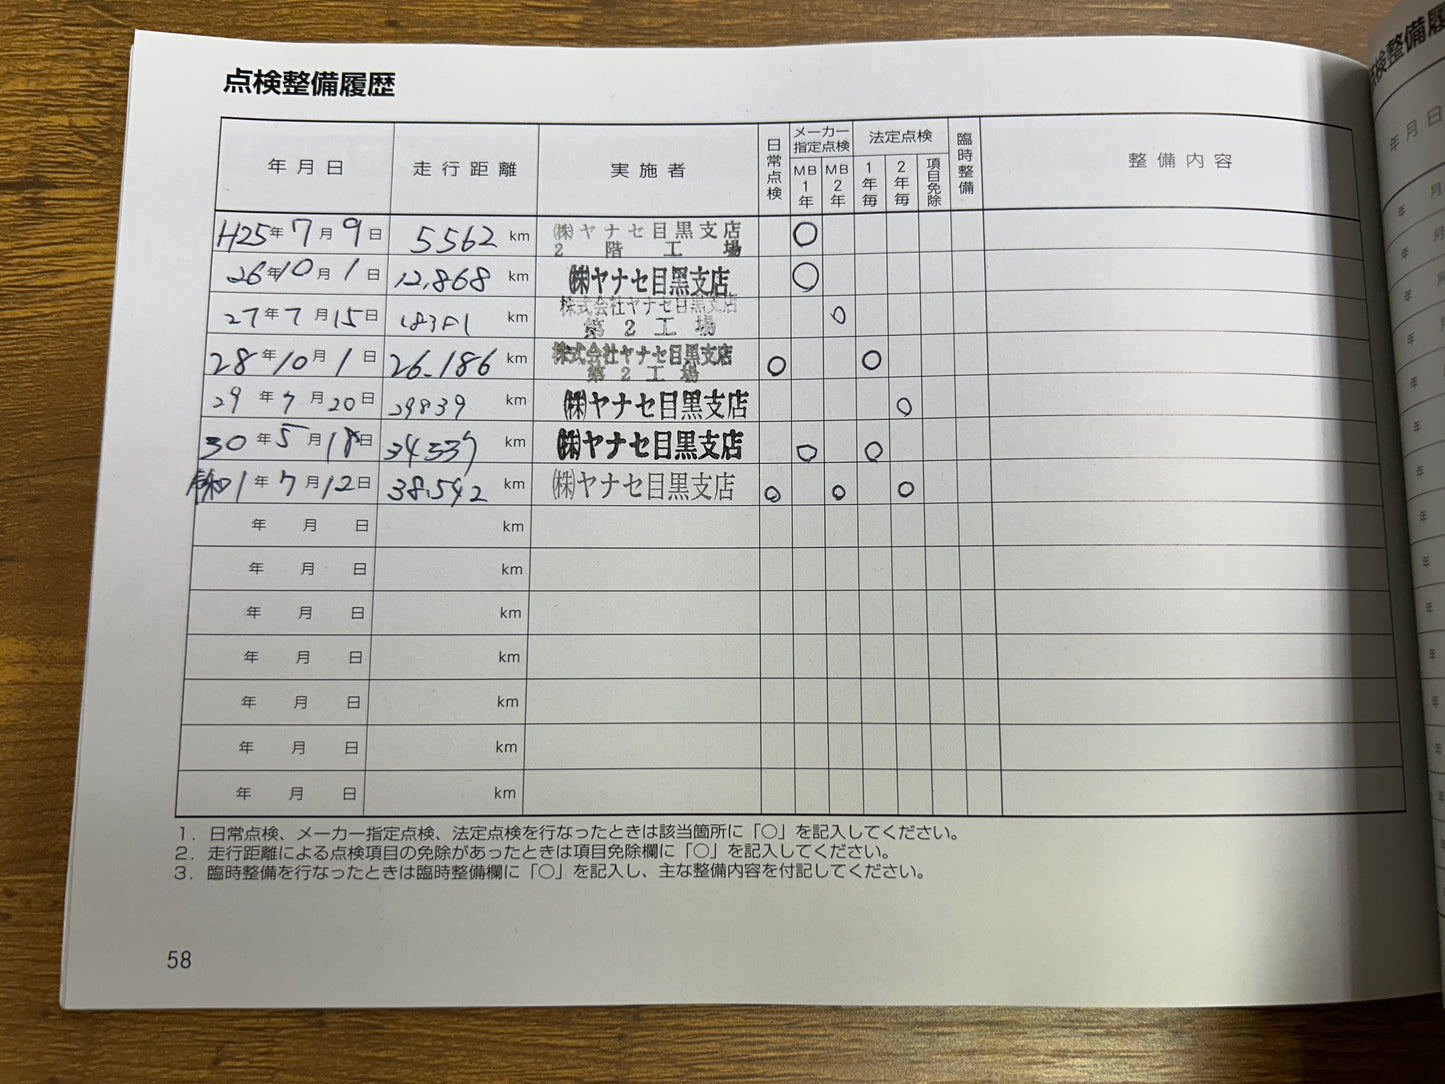 点検整備履歴
年月日 走行距離 実施者 日常点検 メーカー指定点検 MB1年 MB2年 法定点検 1年毎 2年毎 項目免除 臨時整備 整備内容
H25年7月9日 5562 km ㈱ヤナセ目黒支店 2階工場 ○
26年10月1日 12,868 km ㈱ヤナセ目黒支店 ○
27年7月15日 km 株式会社ヤナセ目黒支店 第2工場 ○
28年10月1日 26.186 km 株式会社ヤナセ目黒支店 第2工場 ○ ○
29年7月20日 29839 km ㈱ヤナセ目黒支店 ○
30年5月18日 34337 km ㈱ヤナセ目黒支店 ○ ○
令和1年7月12日 38.542 km ㈱ヤナセ目黒支店 ○ ○ ○
年 月 日 km
年 月 日 km
年 月 日 km
年 月 日 km
年 月 日 km
年 月 日 km
年 月 日 km
1．日常点検、メーカー指定点検、法定点検を行なったときは該当箇所に「○」を記入してください。
2．走行距離による点検項目の免除があったときは項目免除欄に「○」を記入してください。
3．臨時整備を行なったときは臨時整備欄に「○」を記入し、主な整備内容を付記してください。
58
点検整備履
年月日